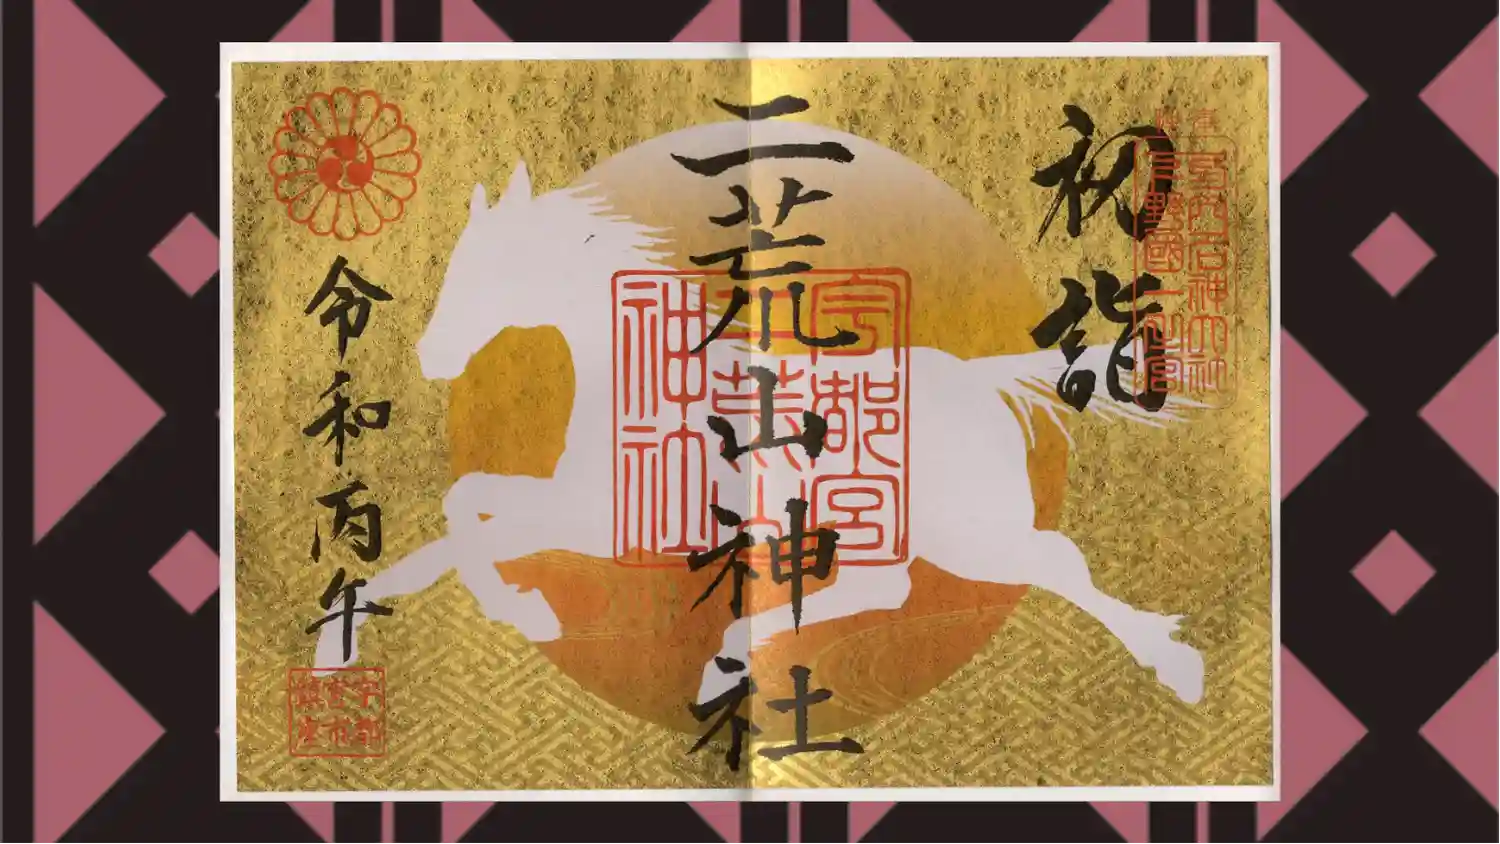 祝詣
式内名神大社
下野國一之宮
二荒山神社
宇都宮
二荒山
神社
令和丙午
宇都
宮市
鎮座